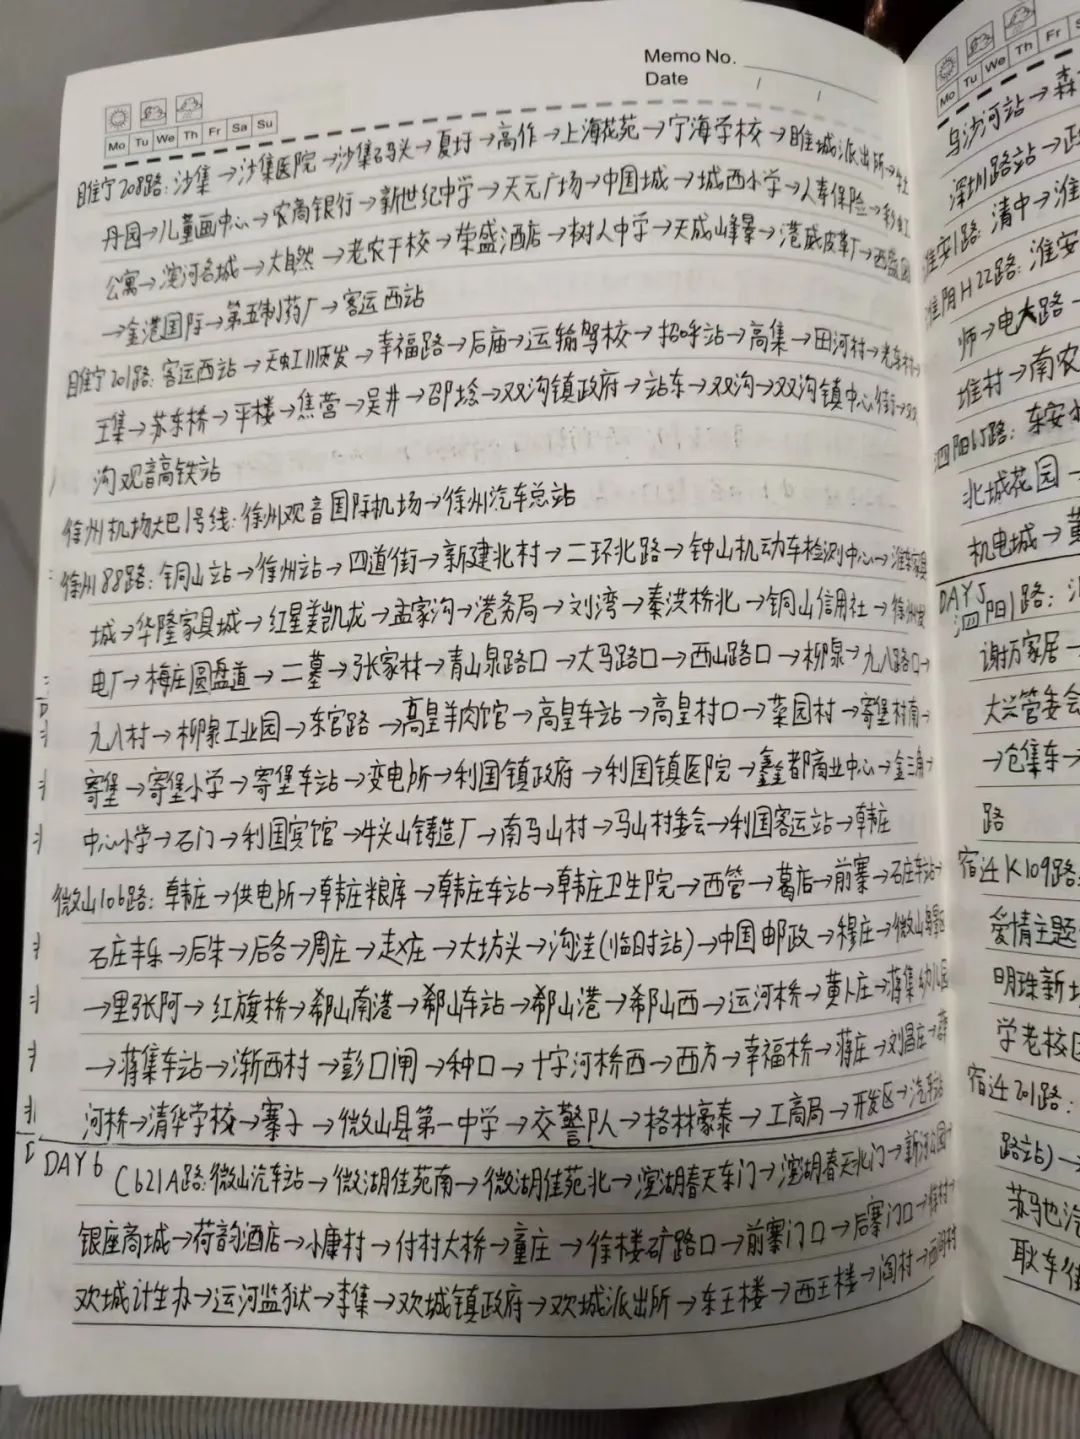 Memo No.
Date / /
Mo Tu We Th Fr Sa Su
睢宁208路:沙集→沙集医院→沙集码头→夏圩→高作→上海花苑→宁海学校→睢城派出所→牡
丹园→儿童画中心→农商银行→新世纪中学→天元广场→中国城→城西小学→人寿保险→彩虹
公寓→滨河名城→大自然→老农干校→荣盛酒店→树人中学→天成山峰景→港威皮革厂→西
→金港国际→第五制药厂→客运西站
睢宁201路:客运西站→天虹顺发→幸福路→后庙→运输驾校→招呼站→高集→田河村→光
王集→苏东桥→平楼→焦营→吴井→邵埝→双沟镇政府→站东→双沟→双沟镇中心街→双
沟观音高铁站
徐州机场大巴1号线:徐州观音国际机场→徐州汽车总站
徐州88路:铜山站→徐州站→四道街→新建北村→二环北路→钟山机动车检测中心→淮海家具
城→华隆家具城→红星美凯龙→孟家沟→港务局→刘湾→秦洪桥北→铜山信用社→徐州发
电厂→梅庄圆盘道→二墓→张家林→青山泉路口→大马路口→西山路口→柳泉→九八路口→
九八村→柳泉工业园→东官路→高皇羊肉馆→高皇车站→高皇村口→菜园村→寄堡村南→
寄堡→寄堡小学→寄堡车站→变电所→利国镇政府→利国镇医院→鑫都商业中心→金三角→
中心小学→石门→利国宾馆→牛头山铸造厂→南马山村→马山村委会→利国客运站→韩庄
微山106路:韩庄→供电所→韩庄粮库→韩庄车站→韩庄卫生院→西管→葛店→前寨→石庄车站→
石庄丰乐→后朱→后各→周庄→赵庄→大坊头→沟洼(临时站)→中国邮政→穆庄→微山岛景区
→里张阿→红旗桥→郗山南港→郗山车站→郗山港→郗山西→运河桥→黄卜庄→蒋集幼儿园
→蒋集车站→渐西村→彭口闸→种口→十字河桥西→西方→幸福桥→蒋庄→刘昌庄→
河桥→清华学校→寨子→微山县第一中学→交警队→格林豪泰→工商局→开发区→汽车站
DAY6
C621A路:微山汽车站→微湖佳苑南→微湖佳苑北→滨湖春天东门→滨湖春天北门→新河公园→
银座商城→荷韵酒店→小康村→付村大桥→童庄→徐楼矿路口→前寨门口→后寨门口→
欢城计生办→运河监狱→李集→欢城镇政府→欢城派出所→东王楼→西王楼→阎村→
Mo Tu We Th Fr S
乌沙河站→森
深圳路站→
淮安1路:清中→淮
淮阴H22路:淮安
师→电大路→
堆村→南农
泗阳15路:东安
北城花园→
机电城→黄
DAY5
泗阳1路:
谢万家居→
大兴管委会
→仓集车→
路
宿迁K109路:
爱情主题
明珠新
学老校区
宿迁201路:
路站)→
苏马也汽
耿车街